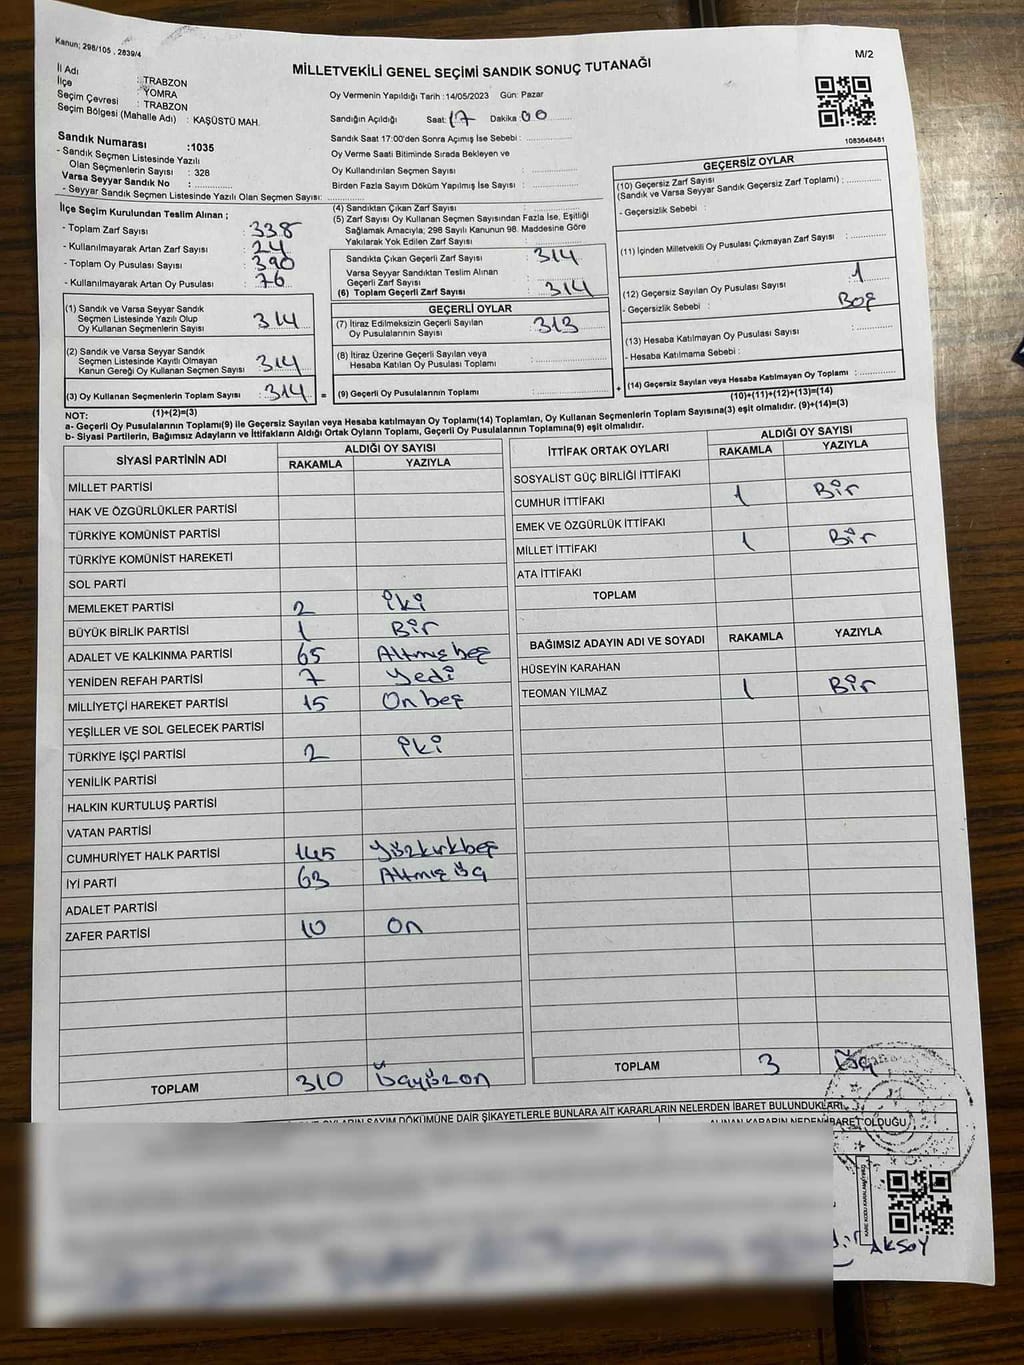 Kanun; 298/105 . 2839/4
M/2
MİLLETVEKİLİ GENEL SEÇİMİ SANDIK SONUÇ TUTANAĞI
İl Adı : TRABZON
İlçe : YOMRA
Seçim Çevresi : TRABZON
Seçim Bölgesi (Mahalle Adı) : KAŞÜSTÜ MAH.
Sandık Numarası :1035
- Sandık Seçmen Listesinde Yazılı
Olan Seçmenlerin Sayısı : 328
Varsa Seyyar Sandık No :
- Seyyar Sandık Seçmen Listesinde Yazılı Olan Seçmen Sayısı:
Oy Vermenin Yapıldığı Tarih :14/05/2023 Gün: Pazar
Sandığın Açıldığı Saat: 17 Dakika 00
Sandık Saat 17:00'den Sonra Açımış İse Sebebi :
Oy Verme Saati Bitiminde Sırada Bekleyen ve
Oy Kullandırılan Seçmen Sayısı :
Birden Fazla Sayım Döküm Yapılmış İse Sayısı :
1083646481
İlçe Seçim Kurulundan Teslim Alınan ;
- Toplam Zarf Sayısı : 338
- Kullanılmayarak Artan Zarf Sayısı : 24
- Toplam Oy Pusulası Sayısı : 390
- Kullanılmayarak Artan Oy Pusulası : 76
(1) Sandık ve Varsa Seyyar Sandık
Seçmen Listesinde Yazılı Olup
Oy Kullanan Seçmenlerin Sayısı : 314
(2) Sandık ve Varsa Seyyar Sandık
Seçmen Listesinde Kayıtlı Olmayan
Kanun Gereği Oy Kullanan Seçmen Sayısı : 314
(3) Oy Kullanan Seçmenlerin Toplam Sayısı : 314 =
(1)+(2)=(3)
(4) Sandıktan Çıkan Zarf Sayısı :
(5) Zarf Sayısı Oy Kullanan Seçmen Sayısından Fazla İse, Eşitliği
Sağlamak Amacıyla; 298 Sayılı Kanunun 98. Maddesine Göre
Yakılarak Yok Edilen Zarf Sayısı :
Sandıkta Çıkan Geçerli Zarf Sayısı : 314
Varsa Seyyar Sandıktan Teslim Alınan
Geçerli Zarf Sayısı :
(6) Toplam Geçerli Zarf Sayısı : 314
GEÇERLİ OYLAR
(7) İtiraz Edilmeksizin Geçerli Sayılan
Oy Pusulalarının Sayısı : 313
(8) İtiraz Üzerine Geçerli Sayılan veya
Hesaba Katılan Oy Pusulası Toplamı :
(9) Geçerli Oy Pusulalarının Toplamı : +
GEÇERSİZ OYLAR
(10) Geçersiz Zarf Sayısı
(Sandık ve Varsa Seyyar Sandık Geçersiz Zarf Toplamı) :
- Geçersizlik Sebebi :
(11) İçinden Milletvekili Oy Pusulası Çıkmayan Zarf Sayısı :
(12) Geçersiz Sayılan Oy Pusulası Sayısı : 1
- Geçersizlik Sebebi : Boş
(13) Hesaba Katılmayan Oy Pusulası Sayısı :
- Hesaba Katılmama Sebebi :
(14) Geçersiz Sayılan veya Hesaba Katılmayan Oy Toplamı :
(10)+(11)+(12)+(13)=(14)
NOT:
a- Geçerli Oy Pusulalarının Toplamı(9) ile Geçersiz Sayılan veya Hesaba katılmayan Oy Toplamı(14) Toplamları, Oy Kullanan Seçmenlerin Toplam Sayısına(3) eşit olmalıdır. (9)+(14)=(3)
b- Siyasi Partilerin, Bağımsız Adayların ve İttifakların Aldığı Ortak Oyların Toplamı, Geçerli Oy Pusulalarının Toplamına(9) eşit olmalıdır.
SİYASİ PARTİNİN ADI ALDIĞI OY SAYISI
RAKAMLA YAZIYLA
MİLLET PARTİSİ
HAK VE ÖZGÜRLÜKLER PARTİSİ
TÜRKİYE KOMÜNİST PARTİSİ
TÜRKİYE KOMÜNİST HAREKETİ
SOL PARTİ
MEMLEKET PARTİSİ 2 iki
BÜYÜK BİRLİK PARTİSİ 1 Bir
ADALET VE KALKINMA PARTİSİ 65 Altmışbeş
YENİDEN REFAH PARTİSİ 7 Yedi
MİLLİYETÇİ HAREKET PARTİSİ 15 Onbeş
YEŞİLLER VE SOL GELECEK PARTİSİ
TÜRKİYE İŞÇİ PARTİSİ 2 iki
YENİLİK PARTİSİ
HALKIN KURTULUŞ PARTİSİ
VATAN PARTİSİ
CUMHURİYET HALK PARTİSİ 145 Yüzkırkbeş
İYİ PARTİ 63 Altmış üç
ADALET PARTİSİ
ZAFER PARTİSİ 10 On
TOPLAM 310 Üçyüzon
İTTİFAK ORTAK OYLARI ALDIĞI OY SAYISI
RAKAMLA YAZIYLA
SOSYALİST GÜÇ BİRLİĞİ İTTİFAKI
CUMHUR İTTİFAKI 1 Bir
EMEK VE ÖZGÜRLÜK İTTİFAKI
MİLLET İTTİFAKI 1 Bir
ATA İTTİFAKI
TOPLAM
BAĞIMSIZ ADAYIN ADI VE SOYADI RAKAMLA YAZIYLA
HÜSEYİN KARAHAN
TEOMAN YILMAZ 1 Bir
TOPLAM 3 Üç
OYLARIN SAYIM DÖKÜMÜNE DAİR ŞİKAYETLERLE BUNLARA AİT KARARLARIN NELERDEN İBARET BULUNDUKLARI
ALINAN KARARIN NEDEN İBARET OLDUĞU
AKSOY